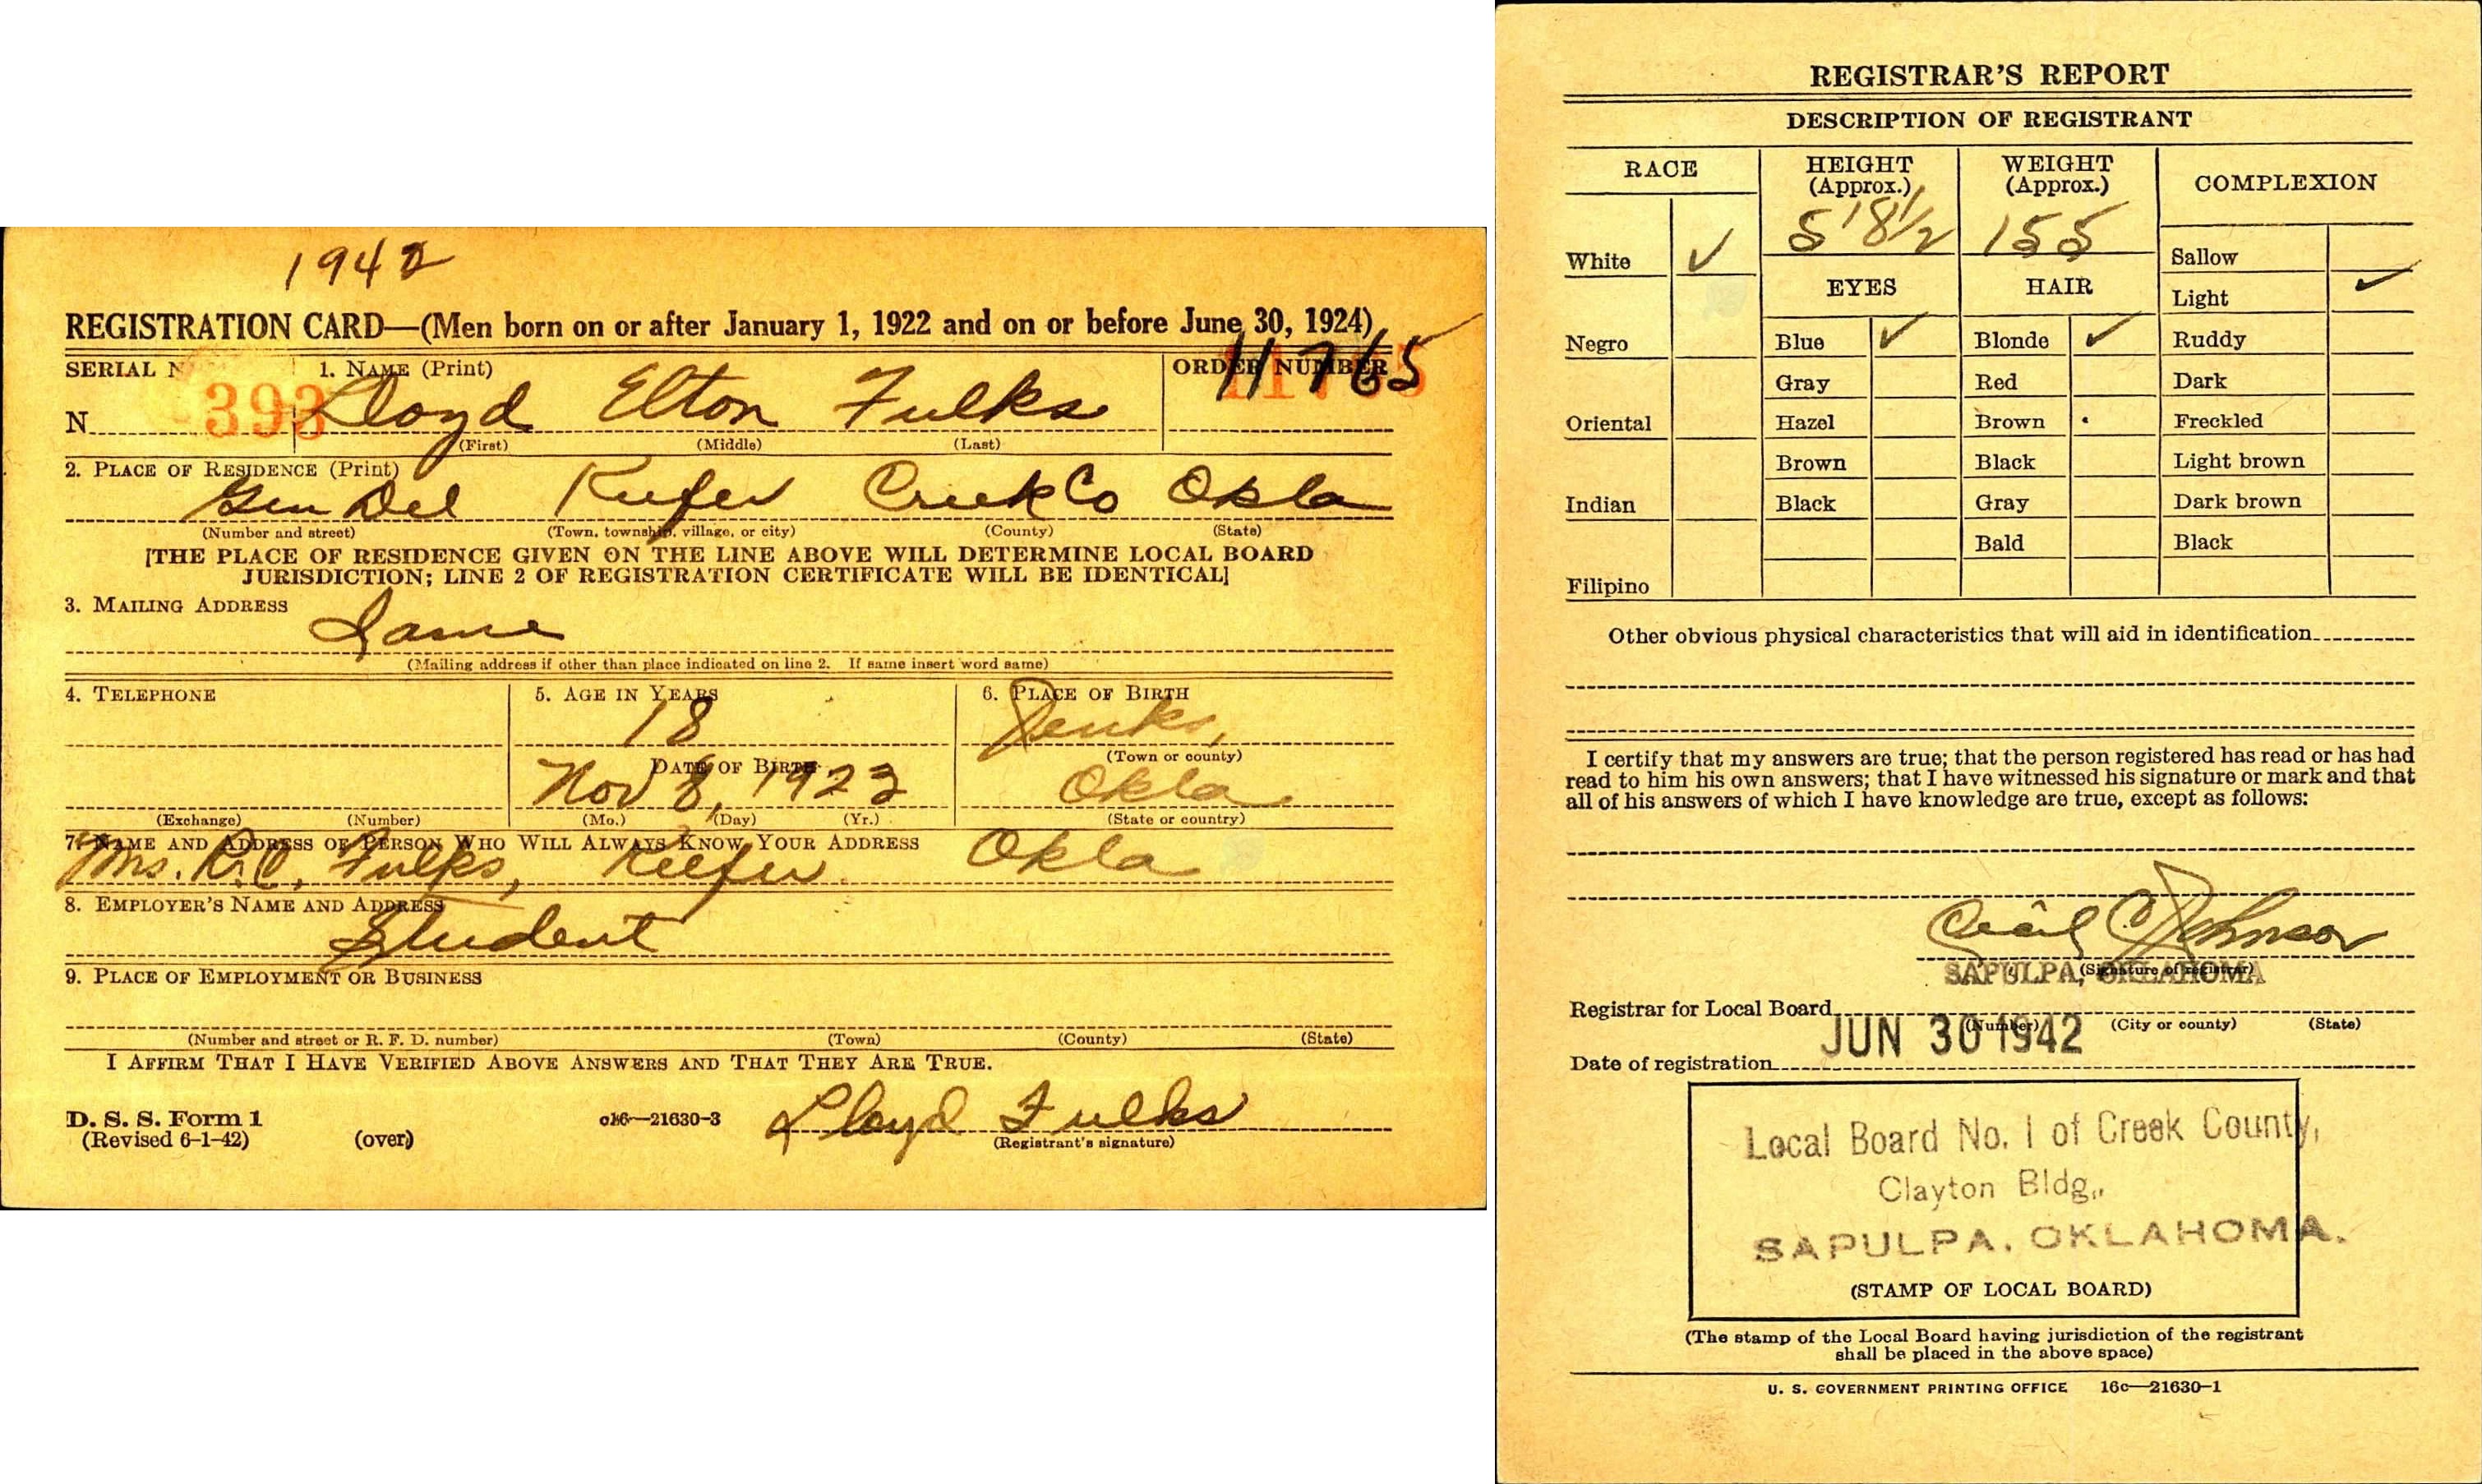 1942
REGISTRATION CARD—(Men born on or after January 1, 1922 and on or before June 30, 1924)
SERIAL N
1. NAME (Print)
ORDER NUMBER
11765
N 393
Lloyd Elton Fulks
(First) (Middle) (Last)
2. PLACE OF RESIDENCE (Print)
Gen Del Kiefer Creek Co Okla
(Number and street) (Town, township, village, or city) (County) (State)
[THE PLACE OF RESIDENCE GIVEN ON THE LINE ABOVE WILL DETERMINE LOCAL BOARD
JURISDICTION; LINE 2 OF REGISTRATION CERTIFICATE WILL BE IDENTICAL]
3. MAILING ADDRESS
Same
(Mailing address if other than place indicated on line 2. If same insert word same)
4. TELEPHONE
5. AGE IN YEARS
6. PLACE OF BIRTH
18
Jenks,
(Town or county)
DATE OF BIRTH
Nov 8, 1923
Okla
(Exchange) (Number) (Mo.) (Day) (Yr.) (State or country)
7. NAME AND ADDRESS OF PERSON WHO WILL ALWAYS KNOW YOUR ADDRESS
Mrs. R.C. Fulks, Kiefer Okla
8. EMPLOYER'S NAME AND ADDRESS
Student
9. PLACE OF EMPLOYMENT OR BUSINESS
(Number and street or R. F. D. number) (Town) (County) (State)
I AFFIRM THAT I HAVE VERIFIED ABOVE ANSWERS AND THAT THEY ARE TRUE.
D. S. S. Form 1
(Revised 6-1-42) (over) 16—21630-3
Lloyd Fulks
(Registrant's signature)
REGISTRAR'S REPORT
DESCRIPTION OF REGISTRANT
RACE
HEIGHT (Approx.)
WEIGHT (Approx.)
COMPLEXION
5'8½ 155
White ✓
Negro
Oriental
Indian
Filipino
EYES
Blue ✓
Gray
Hazel
Brown
Black
HAIR
Blonde ✓
Red
Brown
Black
Gray
Bald
Sallow
Light ✓
Ruddy
Dark
Freckled
Light brown
Dark brown
Black
Other obvious physical characteristics that will aid in identification
I certify that my answers are true; that the person registered has read or has had
read to him his own answers; that I have witnessed his signature or mark and that
all of his answers of which I have knowledge are true, except as follows:
Cecil C. Johnson
(Signature of registrar)
SAPULPA, OKLAHOMA
Registrar for Local Board
(Number) (City or county) (State)
JUN 30 1942
Date of registration
Local Board No. 1 of Creek County,
Clayton Bldg.,
SAPULPA, OKLAHOMA.
(STAMP OF LOCAL BOARD)
(The stamp of the Local Board having jurisdiction of the registrant
shall be placed in the above space)
U. S. GOVERNMENT PRINTING OFFICE 16c—21630-1